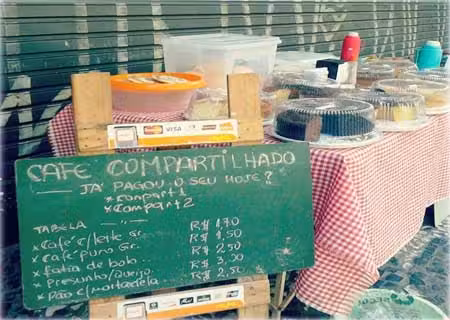 VISA
CAFE COMPARTILHADO
JÁ PAGOU O SEU HOJE?
* Compart 1
* Compart 2
TABELA
* Café c/leite Gr. R$ 1,70
* café puro Gr. R$ 1,50
* fatia de bolo R$ 2,50
* Presunto/Queijo R$ 3,00
* Pão c/mortadela R$ 2,50